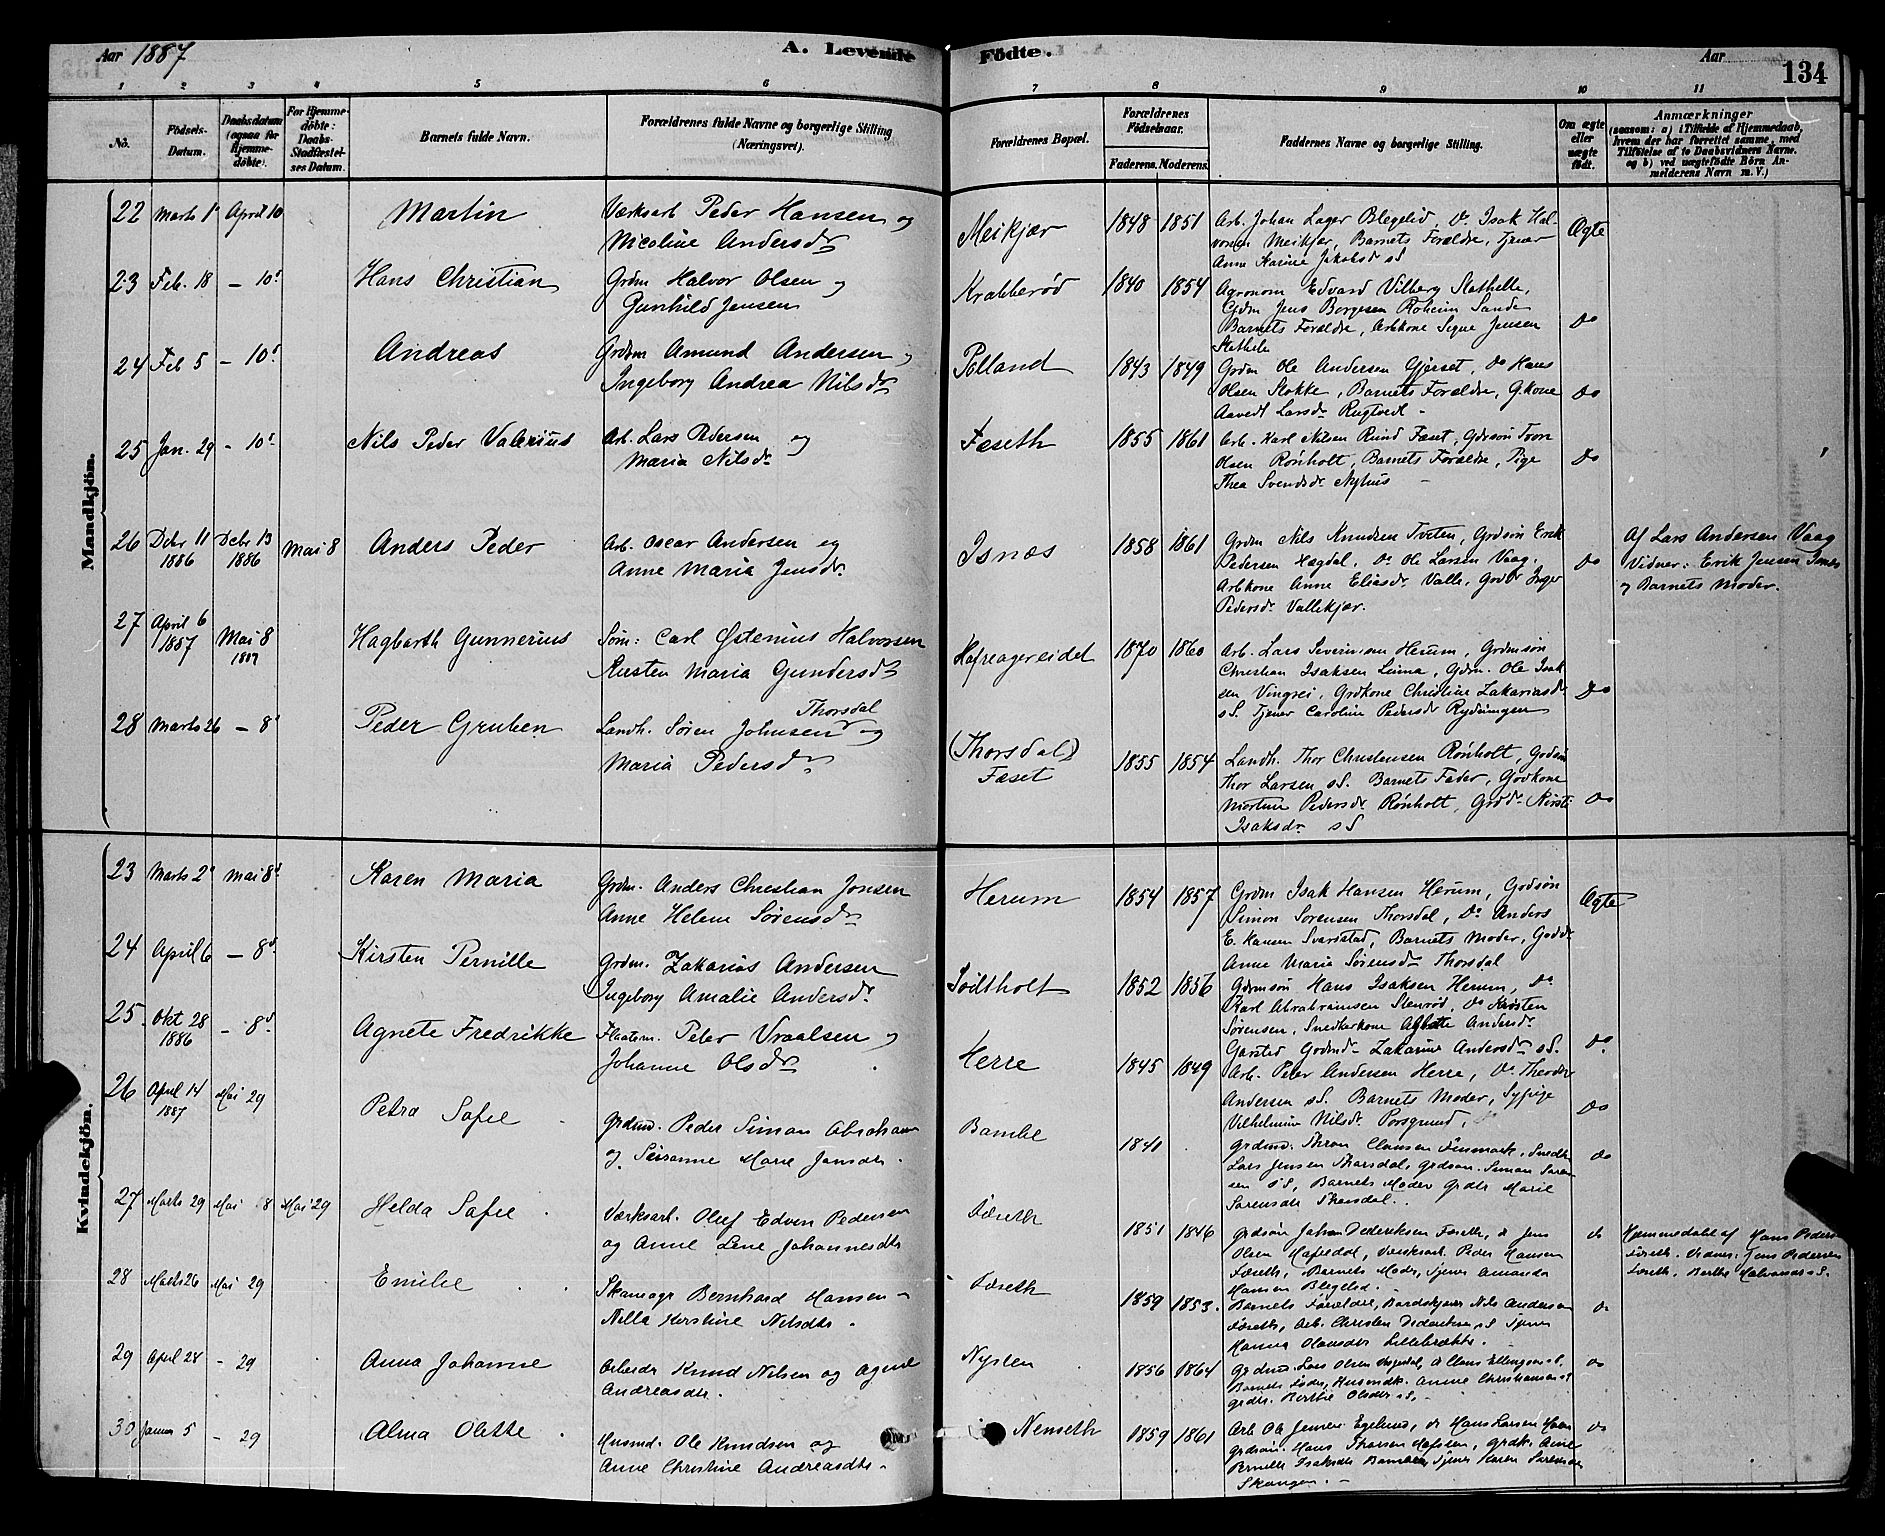 Aar 1887
A. Levende Födte.
Aar
134
1 2 3 4 5 6 7 8 9 10 11
No.
Födsels-Datum.
Daabsdatum (ogsaa for Hjemme-döbte).
For Hjemme-döbte: Daabs-Stadfæstel-ses Datum.
Barnets fulde Navn.
Forældrenes fulde Navne og borgerlige Stilling (Næringsvei).
Forældrenes Bopæl.
Forældrenes Födselsaar.
Faderens. Moderens.
Faddernes Navne og borgerlige Stilling.
Om ægte eller uægte födt.
Anmærkninger
(saasom: a) i Tilfælde af Hjemmedaab,
hvem der har forrettet samme, med
Tilföielse af to Daabsvidners Navne.
og b) ved uægtefödte Börn An-
melderens Navn m. V.)
Mandkjön.
22 Marts 1 April 10 Martin Værksarb Peder Hansen og
Nicoline Andersdr
Meikjær 1848 1851 Arb. Johan Lager Blegelid Do Isak Hal-
vorsen Meikjær, Barnets Forældre, Tjener
Anne Karine Jakobsd sS
Ægte
23 Feb. 18 - 10 Hans Christian Grdm Halvor Olsen og
Gunhild Jensen
Krabberød 1840 1854 Agronom Edvard Vilberg Stathelle,
Gdm Jens Borgesen Roheim Sande
Barnets Forældre, Arbkone Signe Jensen
Stathelle
Do
24 Feb 5 - 10 Andreas Grdm Amund Andersen og
Ingeborg Andrea Nilsdr
Pelland 1843 1849 Grdm Ole Andersen Gjerset, Do Hans
Olsen Stokke, Barnets Forældre, G.kone
Aavedt Larsdr Rugtvedt -
Do
25 Jan. 29 - 10 Nils Peder Valerius Arb. Lars Pedersen og
Maria Nilsdr
Fæseth 1855 1861 Arb. Karl Nilsen Rund Fæset, Gdrsøn Tron
Olsen Rønholt, Barnets Forældre, Pige
Thea Svendsdr Nyhus -
Do
26 Debr 11 1886 Debr 13 1886 Mai 8 Anders Peder Arb. Oscar Andersen og
Anne Maria Jensdr.
Isnæs 1858 1861 Grdm Nils Knudsen Tveten, Grdsøn Erik
Pedersen Hægdal, Do Ole Larsen Vaag,
Arbkone Anne Eliasdr Valle, Grdbr Inger
Pedersdr Vallekjær.
Do
Af Lars Andersen Vaag
Vidner: Erik Jensen Isnes
og Barnets Moder.
27 April 6 1887 Mai 8 1887 Hagbarth Gunnerius Søm: Carl Østenius Halvorsen
Kirsten Maria Gundersdr
Hafreagereidet 1870 1860 Arb. Lars Severinsen Herum, Grdmsøn
Christian Isaksen Leina, Gdm. Ole Isak
sen Vingrei, Grdkone Christine Zakariasdr
sS. Tjener Caroline Pedersdr Rydningen
Do
28 Marts 26 - 8 Peder Gruben Landh. Søren Johnsen Thorsdal og
Maria Pedersdr
(Thorsdal)
Fæset
1855 1854 Landh. Thor Christensen Rønholt, Grdsøn
Thor Larsen sS. Barnets Fader, Grdkone
Martine Pedersdr. Rønholt, Grdd. Kirsti
Isaksdr. sS
Do
Kvindekjön.
23 Marts 2 Mai 8 Karen Maria Grdm. Anders Christian Jonsen
Anne Helene Sørensdr
Herum 1854 1857 Grdm Isak Hansen Herum, Grdsøn
Simon Sorensen Thorsdal, Do Anders
E. Hansen Svarstad, Barnets Moder, Gaddr
Anne Marie Sørensdr Thorsdal
Ægte
24 April 6 - 8 Kirsten Pernille Grdm. Zakarias Andersen
Ingeborg Amalie Andersdr.
Tødtholt 1852 1856 Gdrmsøn Hans Isaksen Herum, Do
Karl Abrahamsen Stenrød, Do Kirsten
Sørensen, Snedkerkone Andersdr.
Garsted Grdmd Zakarine Andersdr sS.
Do
25 Okt 28 1886 - 8 Agnete Fredrikke Flaatem. Peter Vraalsen og
Johanne Olsdr
Herre 1845 1849 Arb. Peter Andersen Herre, Do Theodor
Andersen sS. Barnets Moder, Sypige
Vilhelmine Nilsdr Porsgrund,
Do
26 April 14 1887 Mai 29 Petra Sofie Grdmd. Peder Simon Abraham
og Susanne Marie Jansdr.
Bamble 1840 Grdmd. Thron Clausen Finmark, Snedk
Lars Jensen Tharsdal, Grdsøn. Simon Soren
sen sS, Barnets Moder Grdtr Marie
Sorensdr Thorsdal.
Do
27 Marts 29 Mai 8 Mai 29 Helda Sofie Værksarb. Oluf Edvin Pedersen
og Anne Lene Johannesdtr
Fæseth 1851 1846 Grdsøn Johan Dederiksen Fæseth, do Jens
Olsen Hafsdal, Værksarb. Peder Hansen
Fæseth, Barnets Moder, Tjener Amanda
Hansen Blegelid.
do
Hjemmedøbt af Hans Peders
Fæseth. Vidner: Jens Pedersen
Fæseth. Berthe Halvorsen sS.
28 Marts 26 Mai 29 Emilie Skomager Bernhard Hansen -
Nilla Kirstine Nilsdtr.
Fæseth 1859 1853. Barnets Forældre, Bardskjærer Nils Andersen
Fæseth, Arb. Christen Dederiksen sS Tjener
Hanna Olausdr Lillebrække.
do
29 April 28 - 29 Anna Johanne Arbeider Knud Nilsen og Agnie
Andreasdtr.
Nysten 1856 1864 Grdmd. Lars Olsen do Claus Ellingsen sS.
Barnets Fader, Husmdk. Anne Christiansen sS
Grdtr. Berthe Olsdtr sS. -
do
30 Januar 5 - 29 Alma Olette Husmd. Ole Knudsen og
Anne Christine Andreasdtr.
Nenseth 1859 1861 Arb. Ole Jensen Egelund, do Hans Larsen
Grdsøn. Hans Thorsen Hafsten, Grdk. Anne
Pernille Isaksdtr Bamble, Tjener Karen Sorensen
Skougen. -
do